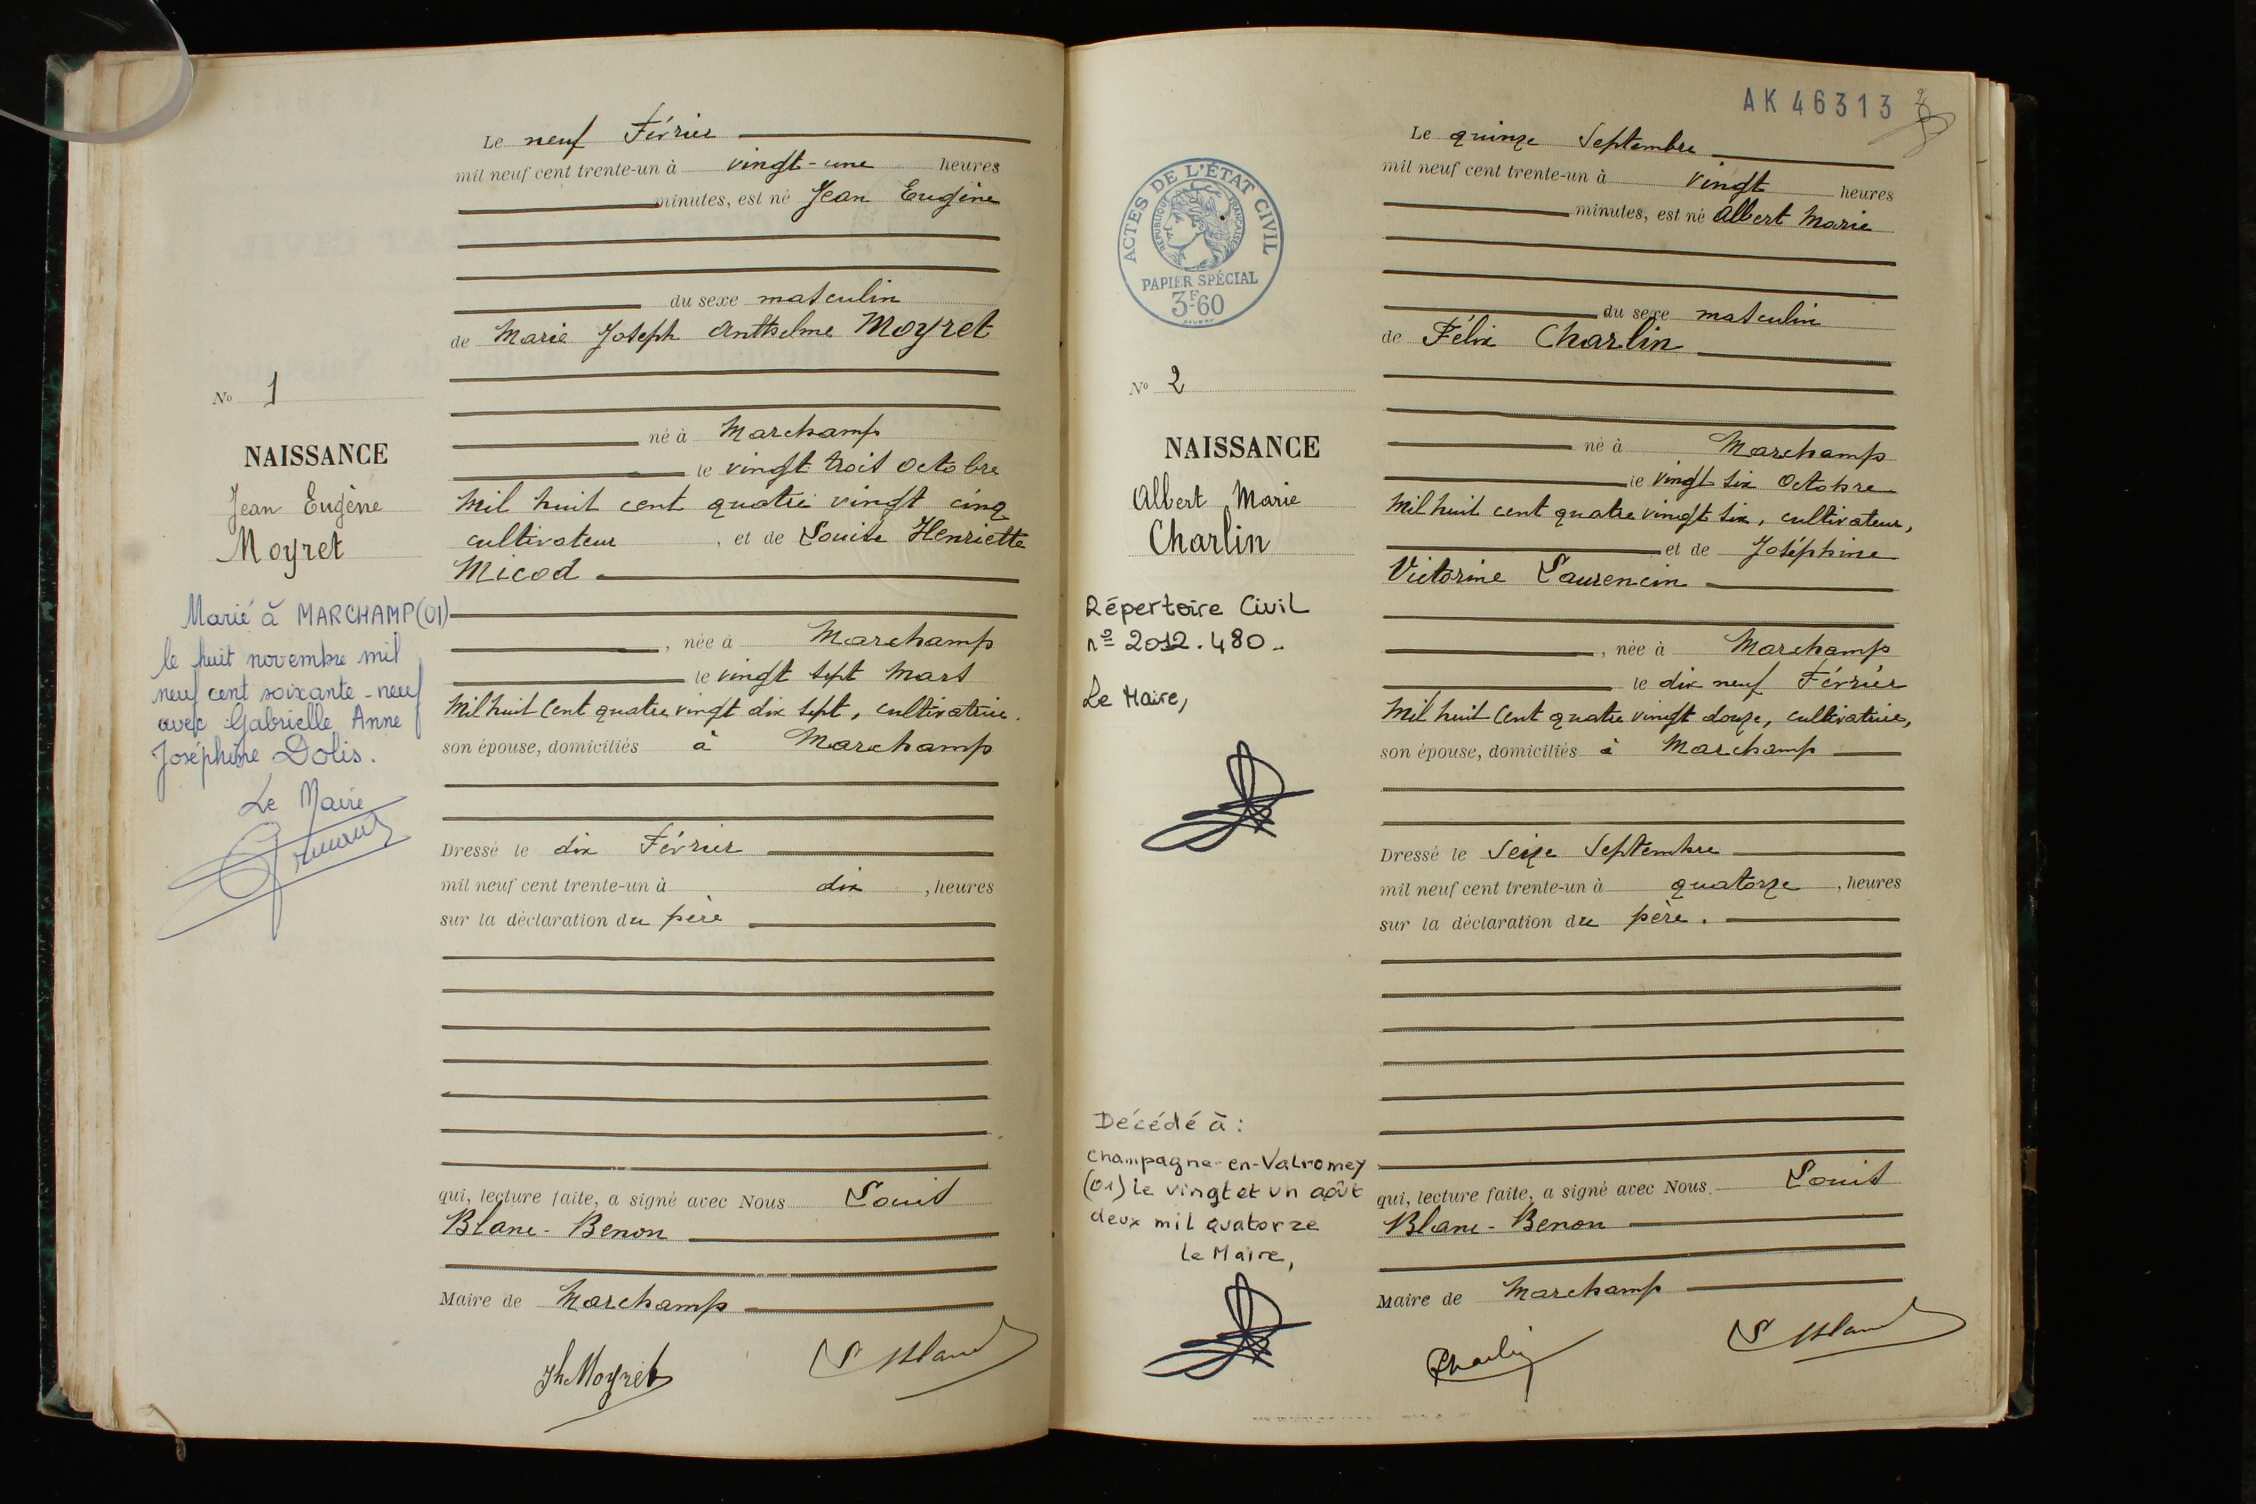 Le neuf Février
mil neuf cent trente-un à vingt-une heures
minutes, est né Jean Eugène
du sexe masculin
de Marie Joseph Anthelme Moyret
né à Marchamp
le vingt trois Octobre
Mil huit cent quatre vingt cinq
cultivateur , et de Louise Henriette
Micod
, née à Marchamp
le vingt sept Mars
Mil huit Cent quatre vingt dix sept, cultivatrice.
son épouse, domiciliés à Marchamp
Dressé le dix Février
mil neuf cent trente-un à dix , heures
sur la déclaration du père
qui, lecture faite, a signé avec Nous Louis
Blanc-Benon
Maire de Marchamp
Jh Moyret L Blanc
No 1
NAISSANCE
Jean Eugène
Moyret
Marié à MARCHAMP (01)
le huit novembre mil
neuf cent soixante-neuf
avec Gabrielle Anne
Joséphine Dolis.
Le Maire
AK 46313
2
ACTES DE L'ÉTAT CIVIL
RÉPUBLIQUE FRANÇAISE
PAPIER SPÉCIAL
3F60
No 2
NAISSANCE
Albert Marie
Charlin
Répertoire Civil
nº 2012.480.
Le Maire,
Décédé à :
Champagne-en-Valromey
(01) le vingt et un août
deux mil quatorze
Le Maire,
Le quinze Septembre
mil neuf cent trente-un à vingt heures
minutes, est né Albert Marie
du sexe masculin
de Félix Charlin
né à Marchamp
le vingt six Octobre
Mil huit cent quatre vingt six, cultivateur,
et de Joséphine
Victorine Laurencin
, née à Marchamp
le dix neuf Février
Mil huit Cent quatre vingt douze, cultivatrice,
son épouse, domiciliés à Marchamp
Dressé le Seize Septembre
mil neuf cent trente-un à quatorze , heures
sur la déclaration du père.
qui, lecture faite, a signé avec Nous Louis
Blanc-Benon
Maire de Marchamp
Charlin L Blanc